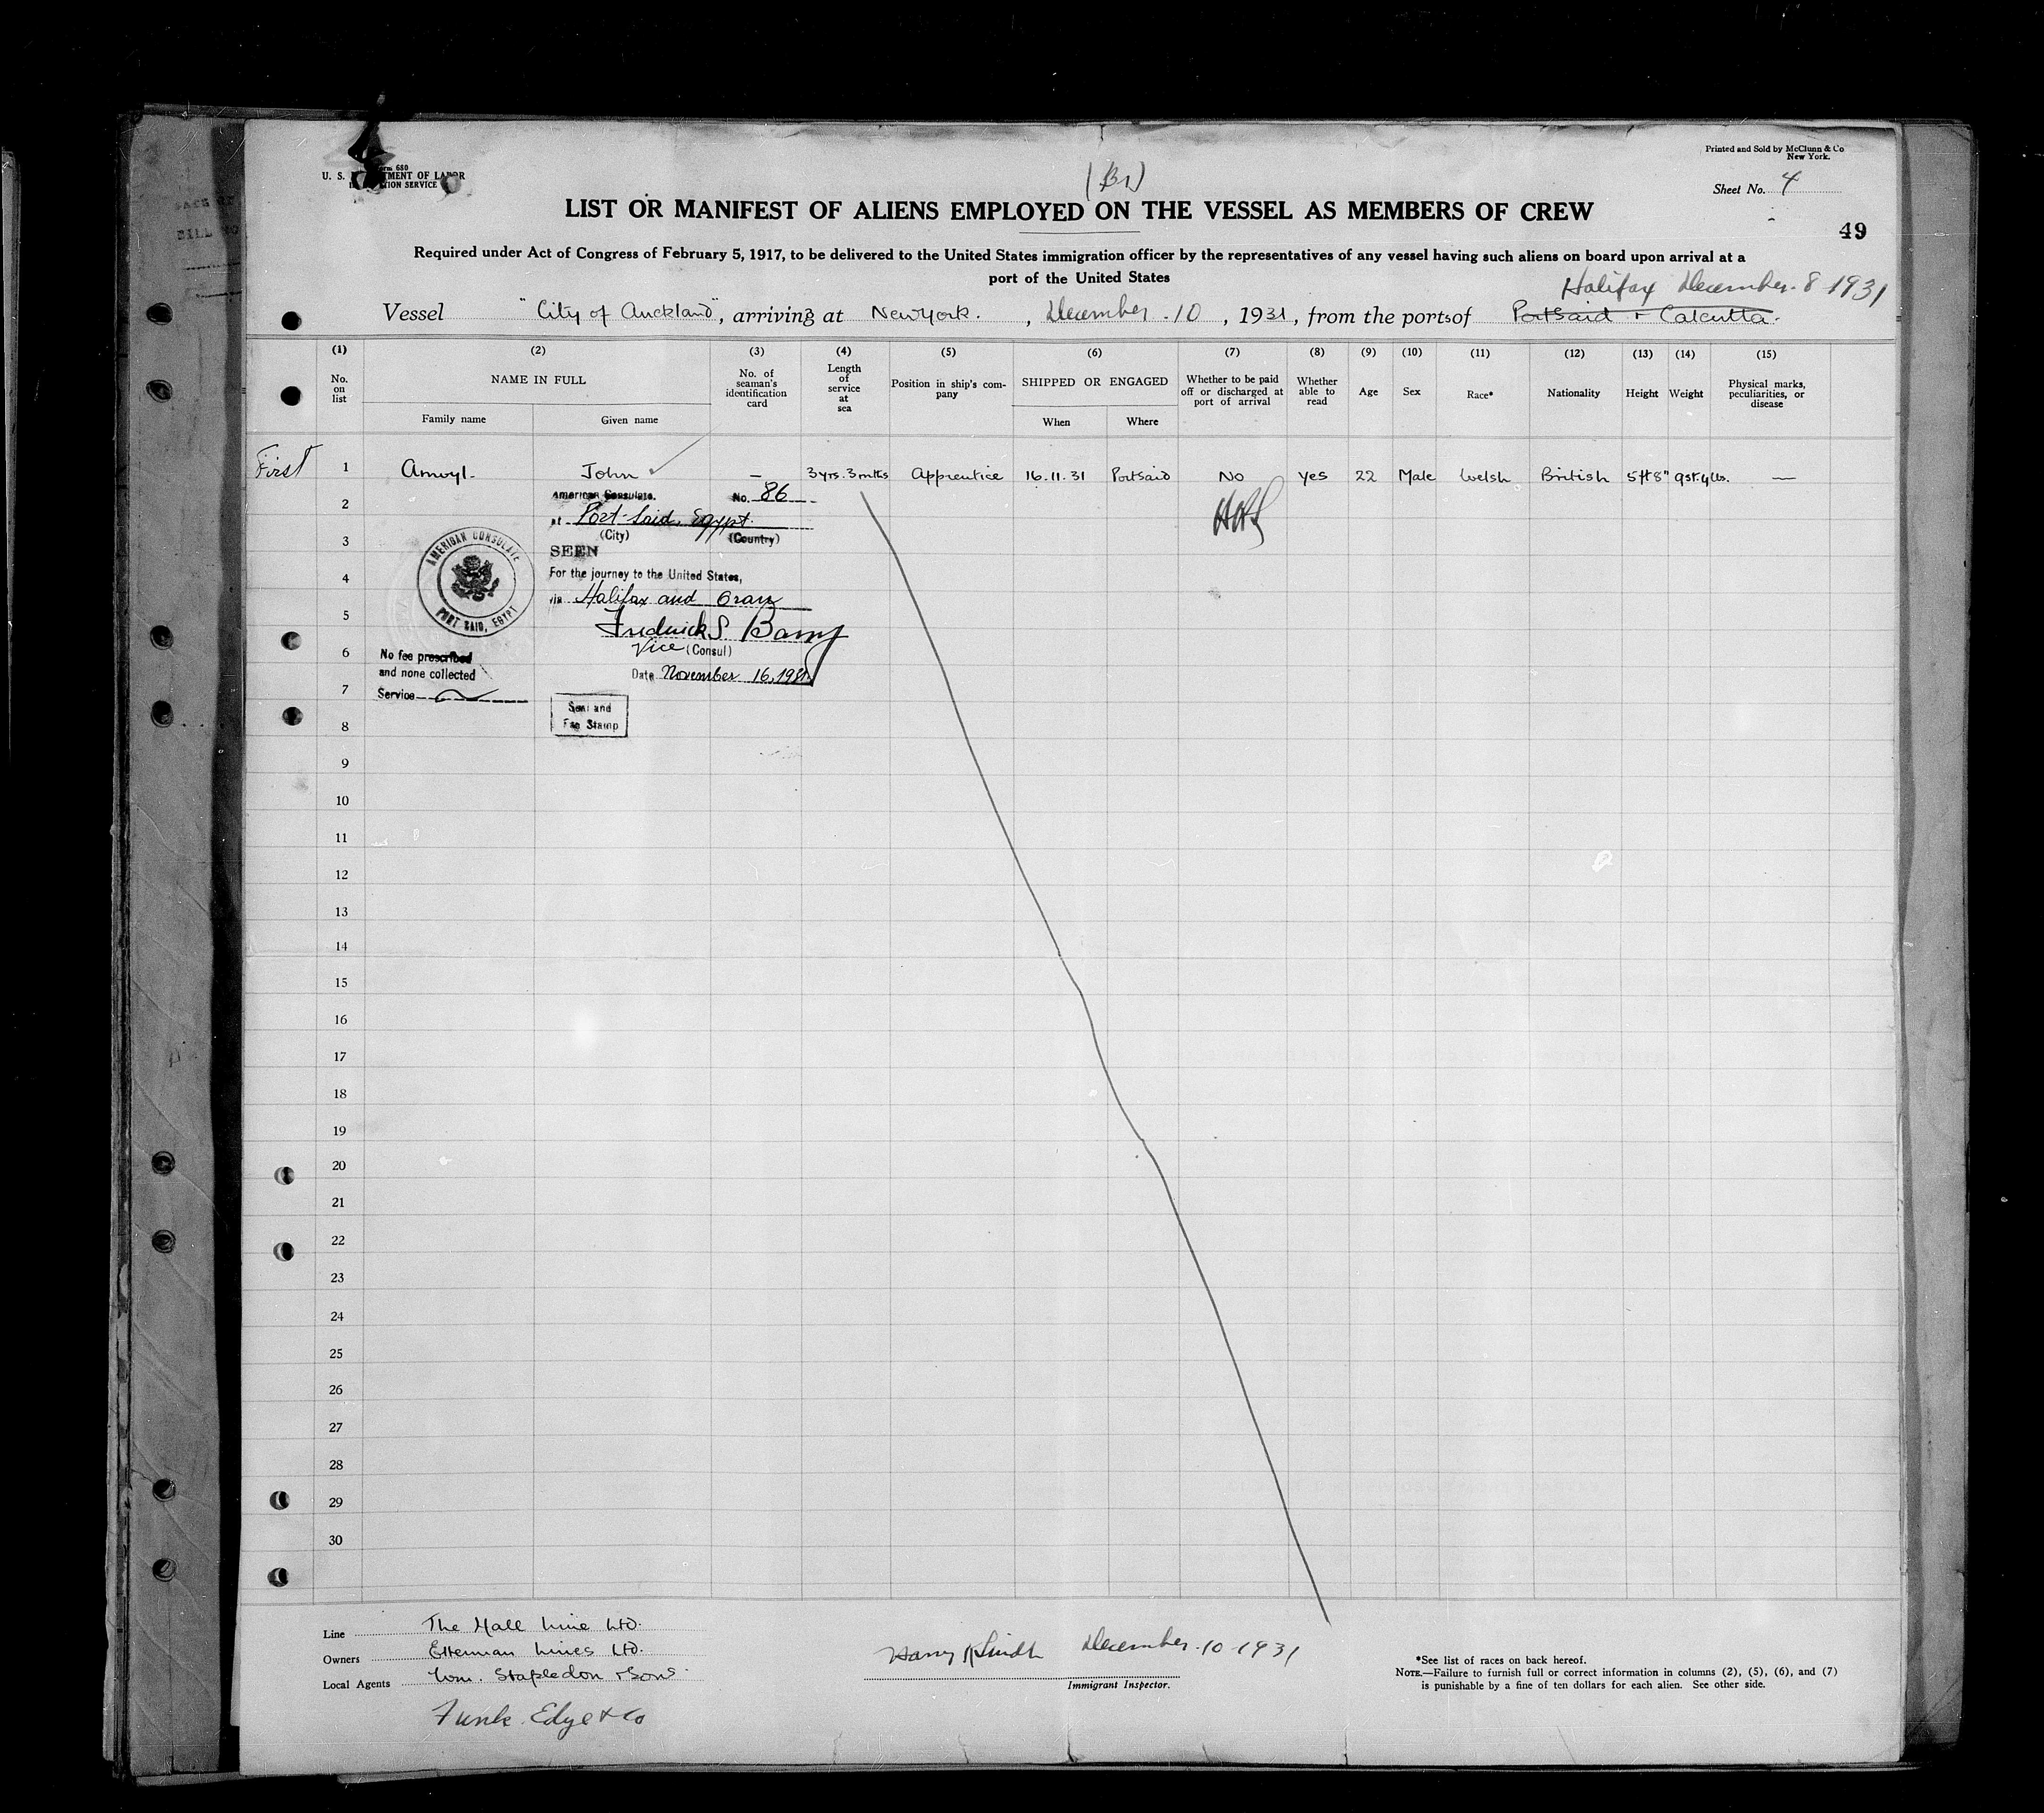 Printed and Sold by McClunn & Co
New York.
U. S. DEPARTMENT OF LABOR
(Br)
Sheet No. 4
LIST OR MANIFEST OF ALIENS EMPLOYED ON THE VESSEL AS MEMBERS OF CREW
49
Required under Act of Congress of February 5, 1917, to be delivered to the United States immigration officer by the representatives of any vessel having such aliens on board upon arrival at a
port of the United States
Halifax December 8 1931
Vessel "City of Auckland", arriving at New York. , December 10 , 1931, from the ports of Portsaid + Calcutta.
(1) (2) (3) (4) (5) (6) (7) (8) (9) (10) (11) (12) (13) (14) (15)
No. on list NAME IN FULL No. of seaman's identification card Length of service at sea Position in ship's company SHIPPED OR ENGAGED Whether to be paid off or discharged at port of arrival Whether able to read Age Sex Race* Nationality Height Weight Physical marks, peculiarities, or disease
Family name Given name When Where
First 1 Amwyl. John — 3 yrs. 3 mths Apprentice 16.11.31 Portsaid No yes 22 Male Welsh British 5ft 8" 9st. 4lbs. —
2
American Consulate. No. 86
at Port-Said, Egypt.
(City) (Country)
3
SEEN
AMERICAN CONSULATE
PORT SAID, EGYPT
4
For the journey to the United States,
via Halifax and Oran
5
Frederick S. Barny
6
Vice (Consul)
No fee prescribed
and none collected
Date November 16, 1931
7
Service
8
Seal and
Fee Stamp
9
10
11
12
13
14
15
16
17
18
19
20
21
22
23
24
25
26
27
28
29
30
Line The Hall Line Ltd.
Owners Ellerman Lines Ltd.
Local Agents Wm. Stapledon & Sons.
Funk. Edye & Co
Harry December 10 1931
Immigrant Inspector.
*See list of races on back hereof.
NOTE.—Failure to furnish full or correct information in columns (2), (5), (6), and (7)
is punishable by a fine of ten dollars for each alien. See other side.